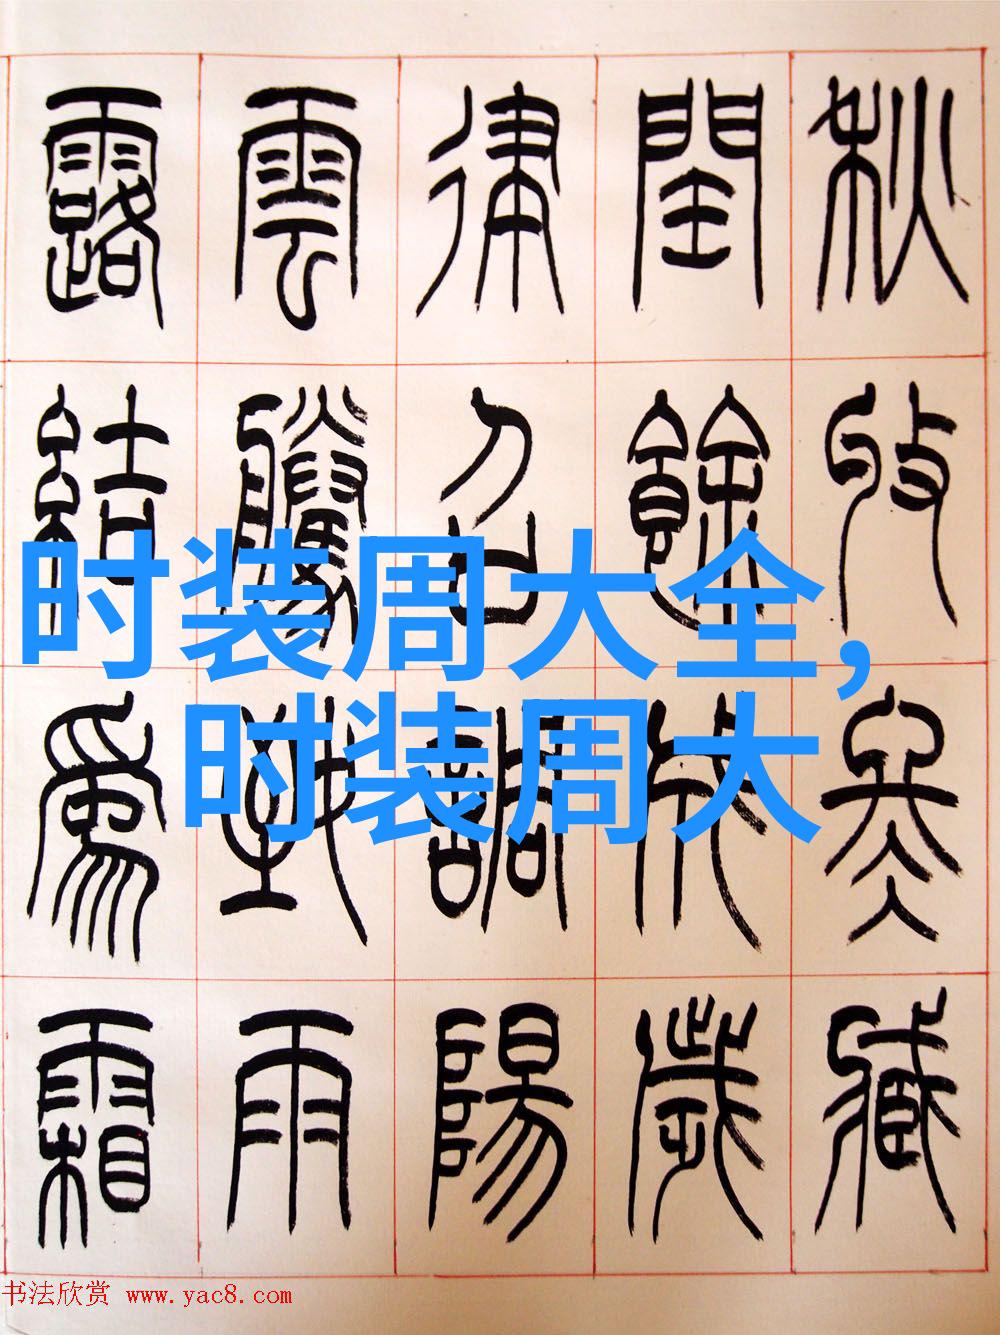 秋收冬藏
閏餘成歲
律召調陽
雲騰致雨
露結爲霜
时装周大全,
时装周大
书法欣赏 www.yac8.com